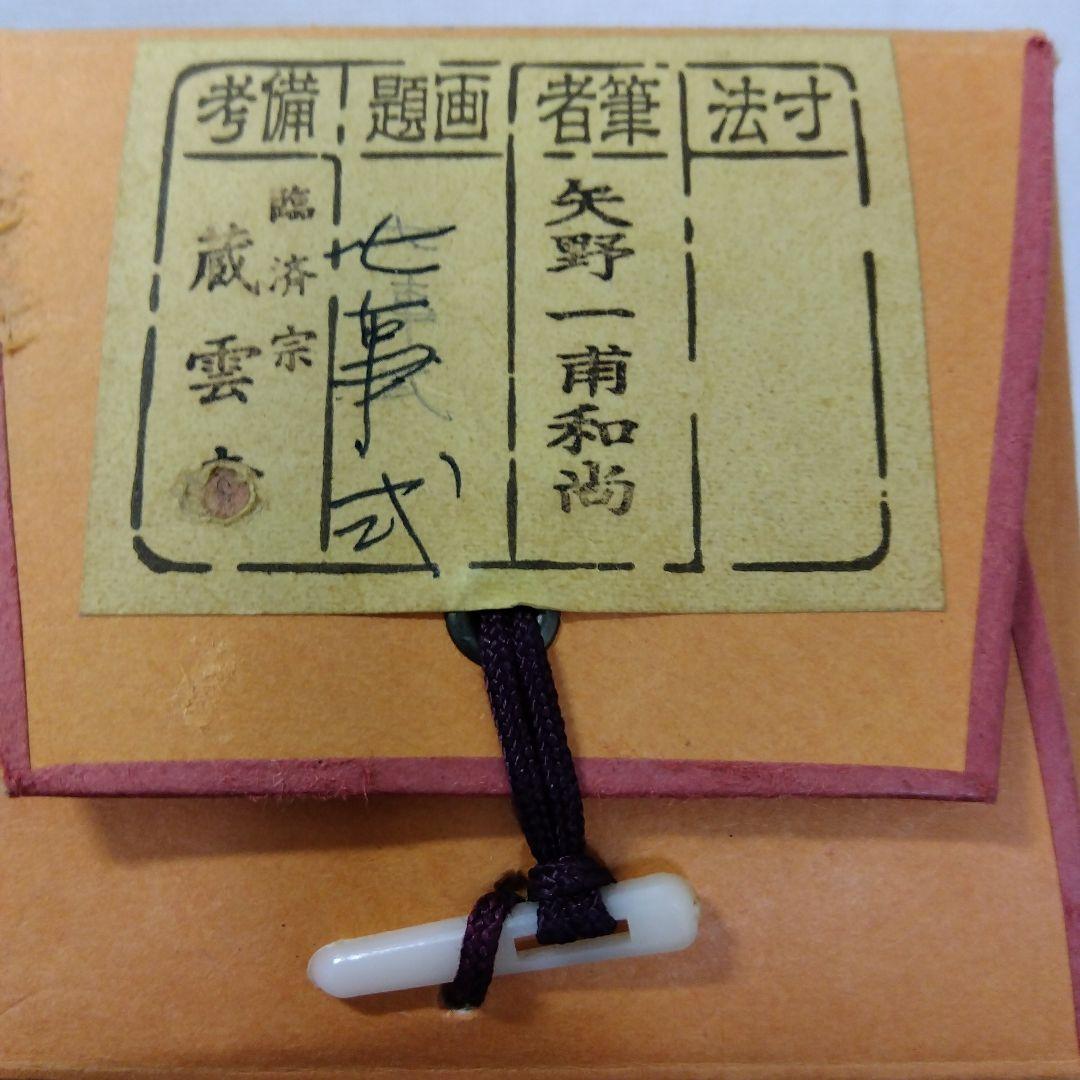 寸法
筆者
矢野一甫和尚
画題
七事式
備考
臨済宗
蔵雲